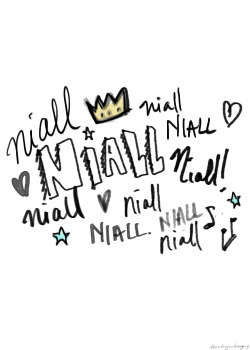 niall
niall
NIALL
NIALL
Niall!
niall
niall
NIALL.
NIALL
niall